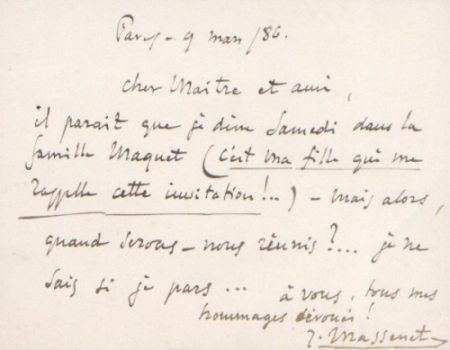 Paris - 9 mars /86.
Cher Maître et ami,
il parait que je dîne Samedi dans la
famille Maquet (c'est ma fille qui me
rappelle cette invitation!..) - mais alors,
quand serons-nous réunis?... je ne
sais si je pars...
à vous, tous mes
hommages dévoués!
J. Massenet